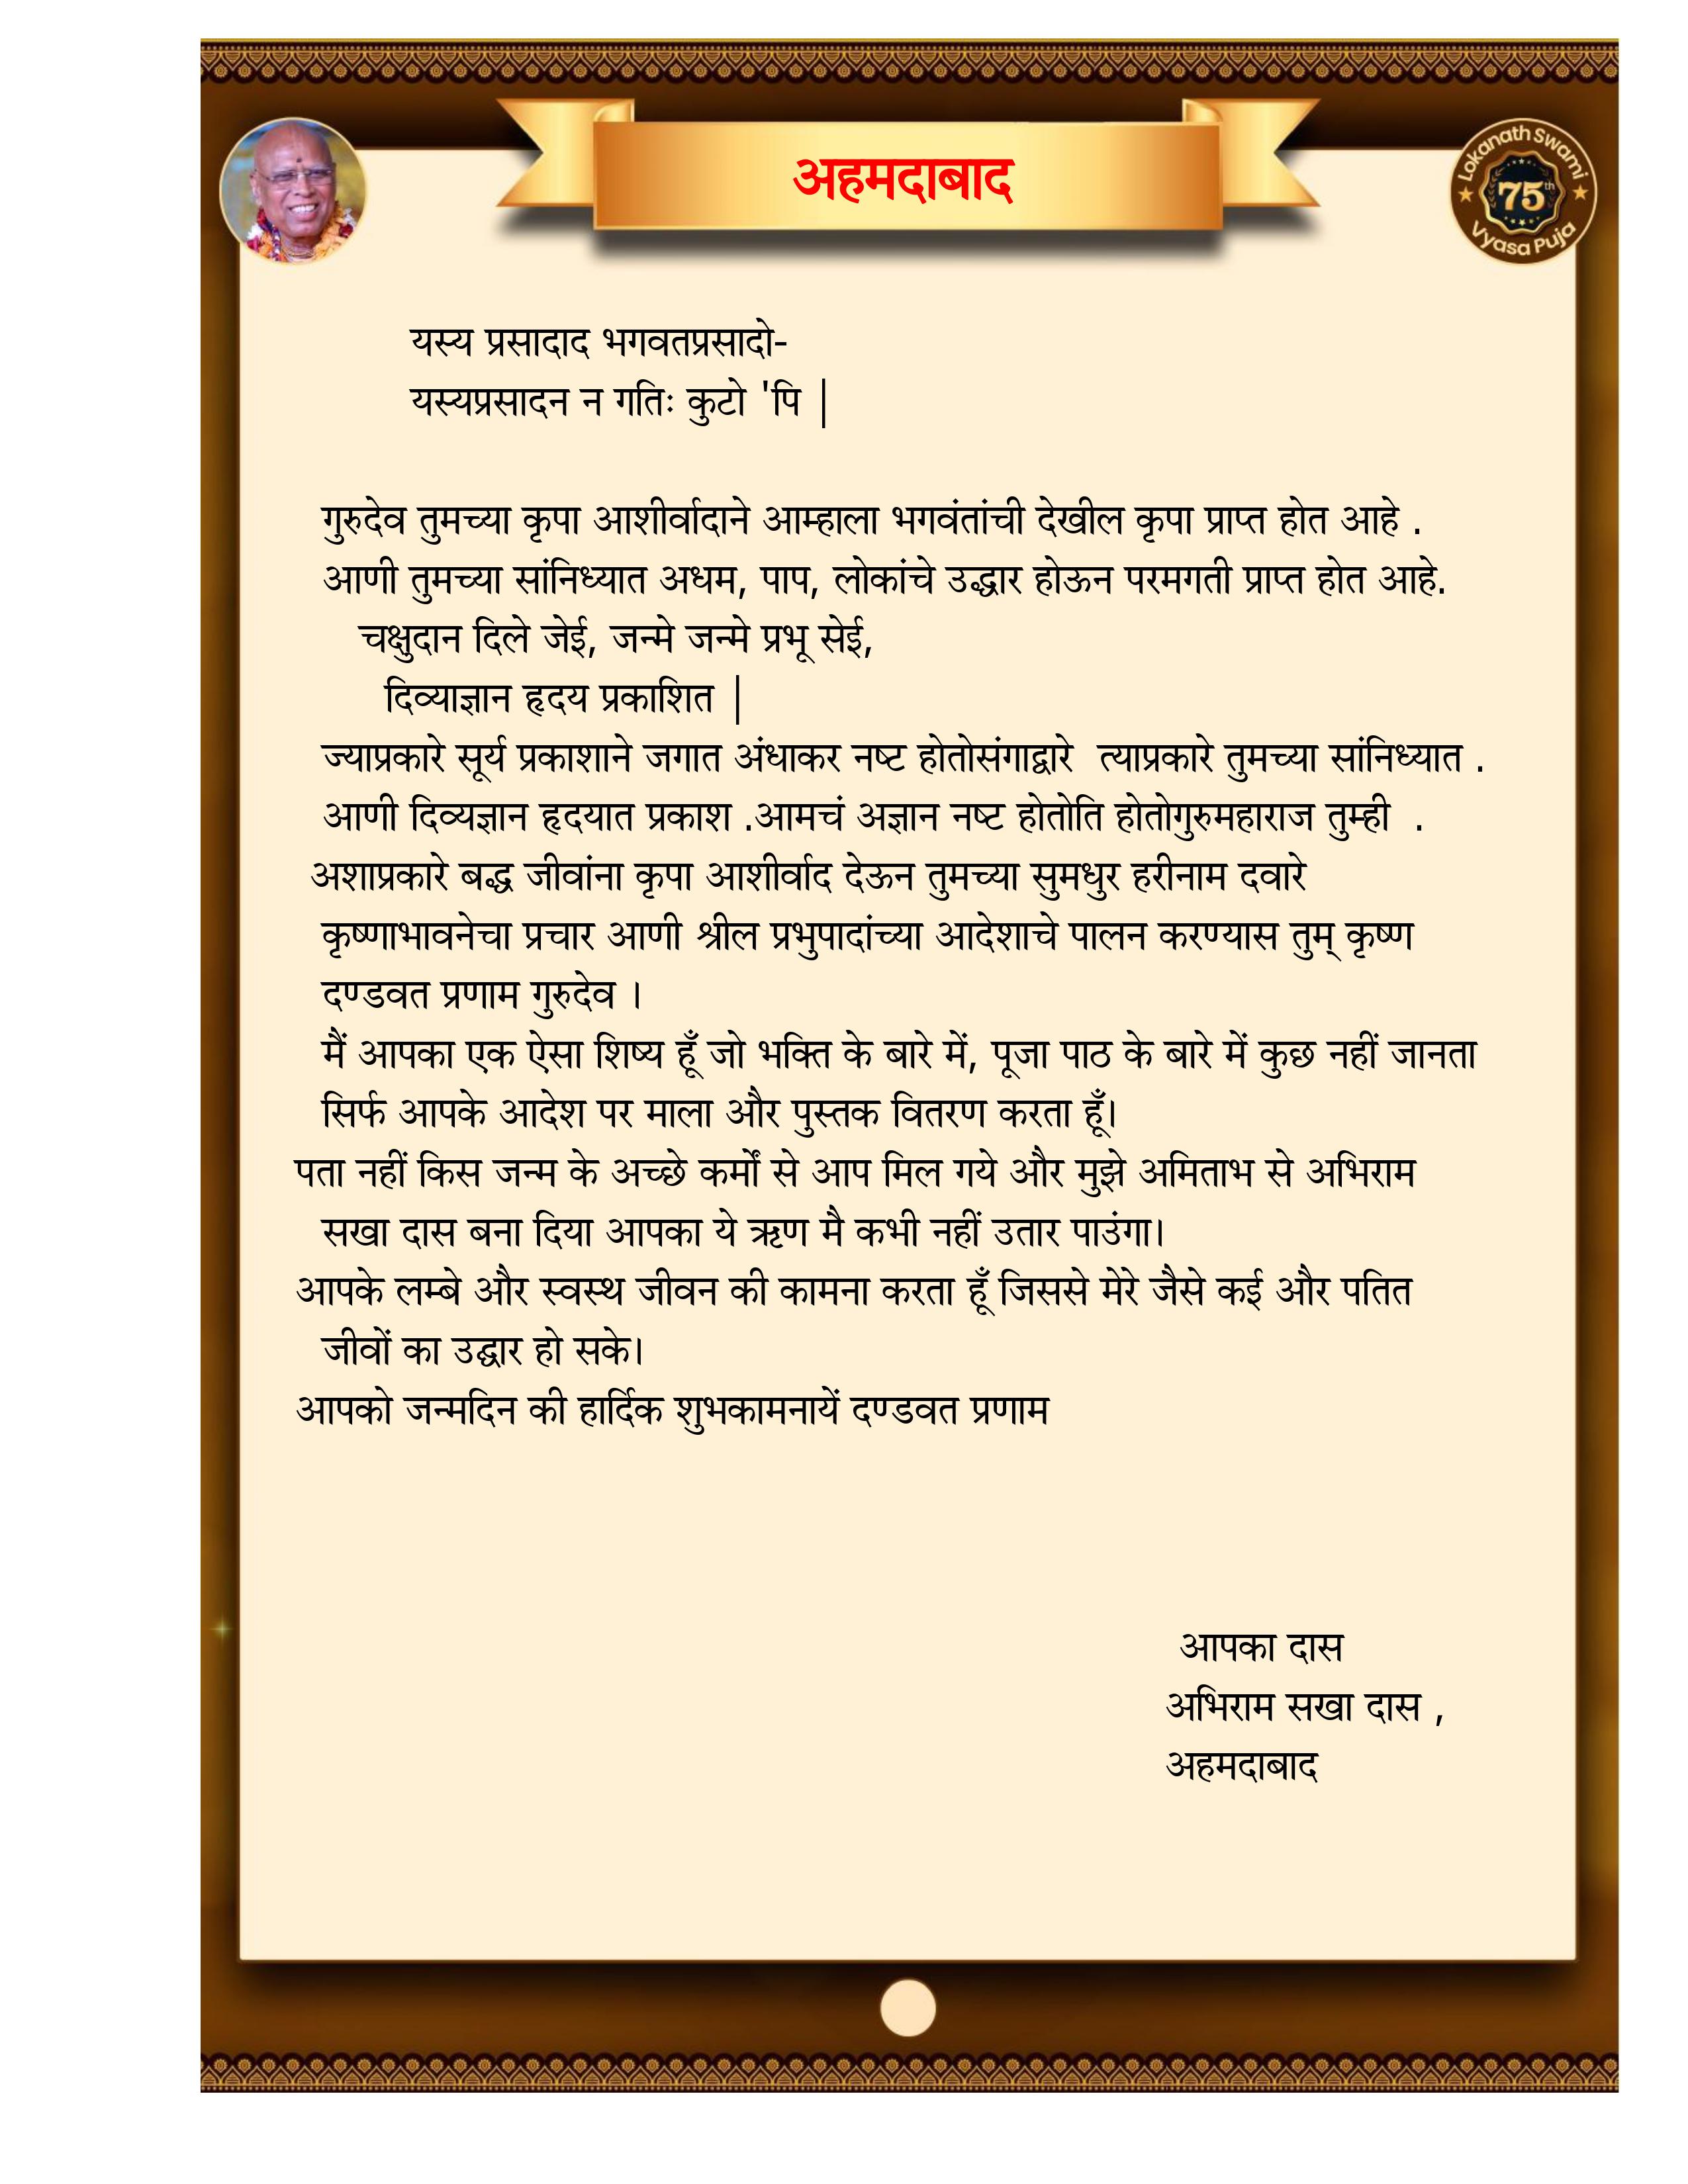 अहमदाबाद
Lokanath Swami
75th
Vyasa Puja
यस्य प्रसादाद भगवतप्रसादो-
यस्यप्रसादन न गतिः कुटो 'पि |
गुरुदेव तुमच्या कृपा आशीर्वादाने आम्हाला भगवंतांची देखील कृपा प्राप्त होत आहे .
आणी तुमच्या सांनिध्यात अधम, पाप, लोकांचे उद्धार होऊन परमगती प्राप्त होत आहे.
चक्षुदान दिले जेई, जन्मे जन्मे प्रभू सेई,
दिव्याज्ञान हृदय प्रकाशित |
ज्याप्रकारे सूर्य प्रकाशाने जगात अंधाकर नष्ट होतोसंगाद्वारे  त्याप्रकारे तुमच्या सांनिध्यात .
आणी दिव्यज्ञान हृदयात प्रकाश .आमचं अज्ञान नष्ट होतोति होतोगुरुमहाराज तुम्ही  .
अशाप्रकारे बद्ध जीवांना कृपा आशीर्वाद देऊन तुमच्या सुमधुर हरीनाम दवारे
कृष्णाभावनेचा प्रचार आणी श्रील प्रभुपादांच्या आदेशाचे पालन करण्यास तुम् कृष्ण
दण्डवत प्रणाम गुरुदेव ।
मैं आपका एक ऐसा शिष्य हूँ जो भक्ति के बारे में, पूजा पाठ के बारे में कुछ नहीं जानता
सिर्फ आपके आदेश पर माला और पुस्तक वितरण करता हूँ।
पता नहीं किस जन्म के अच्छे कर्मों से आप मिल गये और मुझे अमिताभ से अभिराम
सखा दास बना दिया आपका ये ऋण मै कभी नहीं उतार पाउंगा।
आपके लम्बे और स्वस्थ जीवन की कामना करता हूँ जिससे मेरे जैसे कई और पतित
जीवों का उद्धार हो सके।
आपको जन्मदिन की हार्दिक शुभकामनायें दण्डवत प्रणाम
आपका दास
अभिराम सखा दास ,
अहमदाबाद